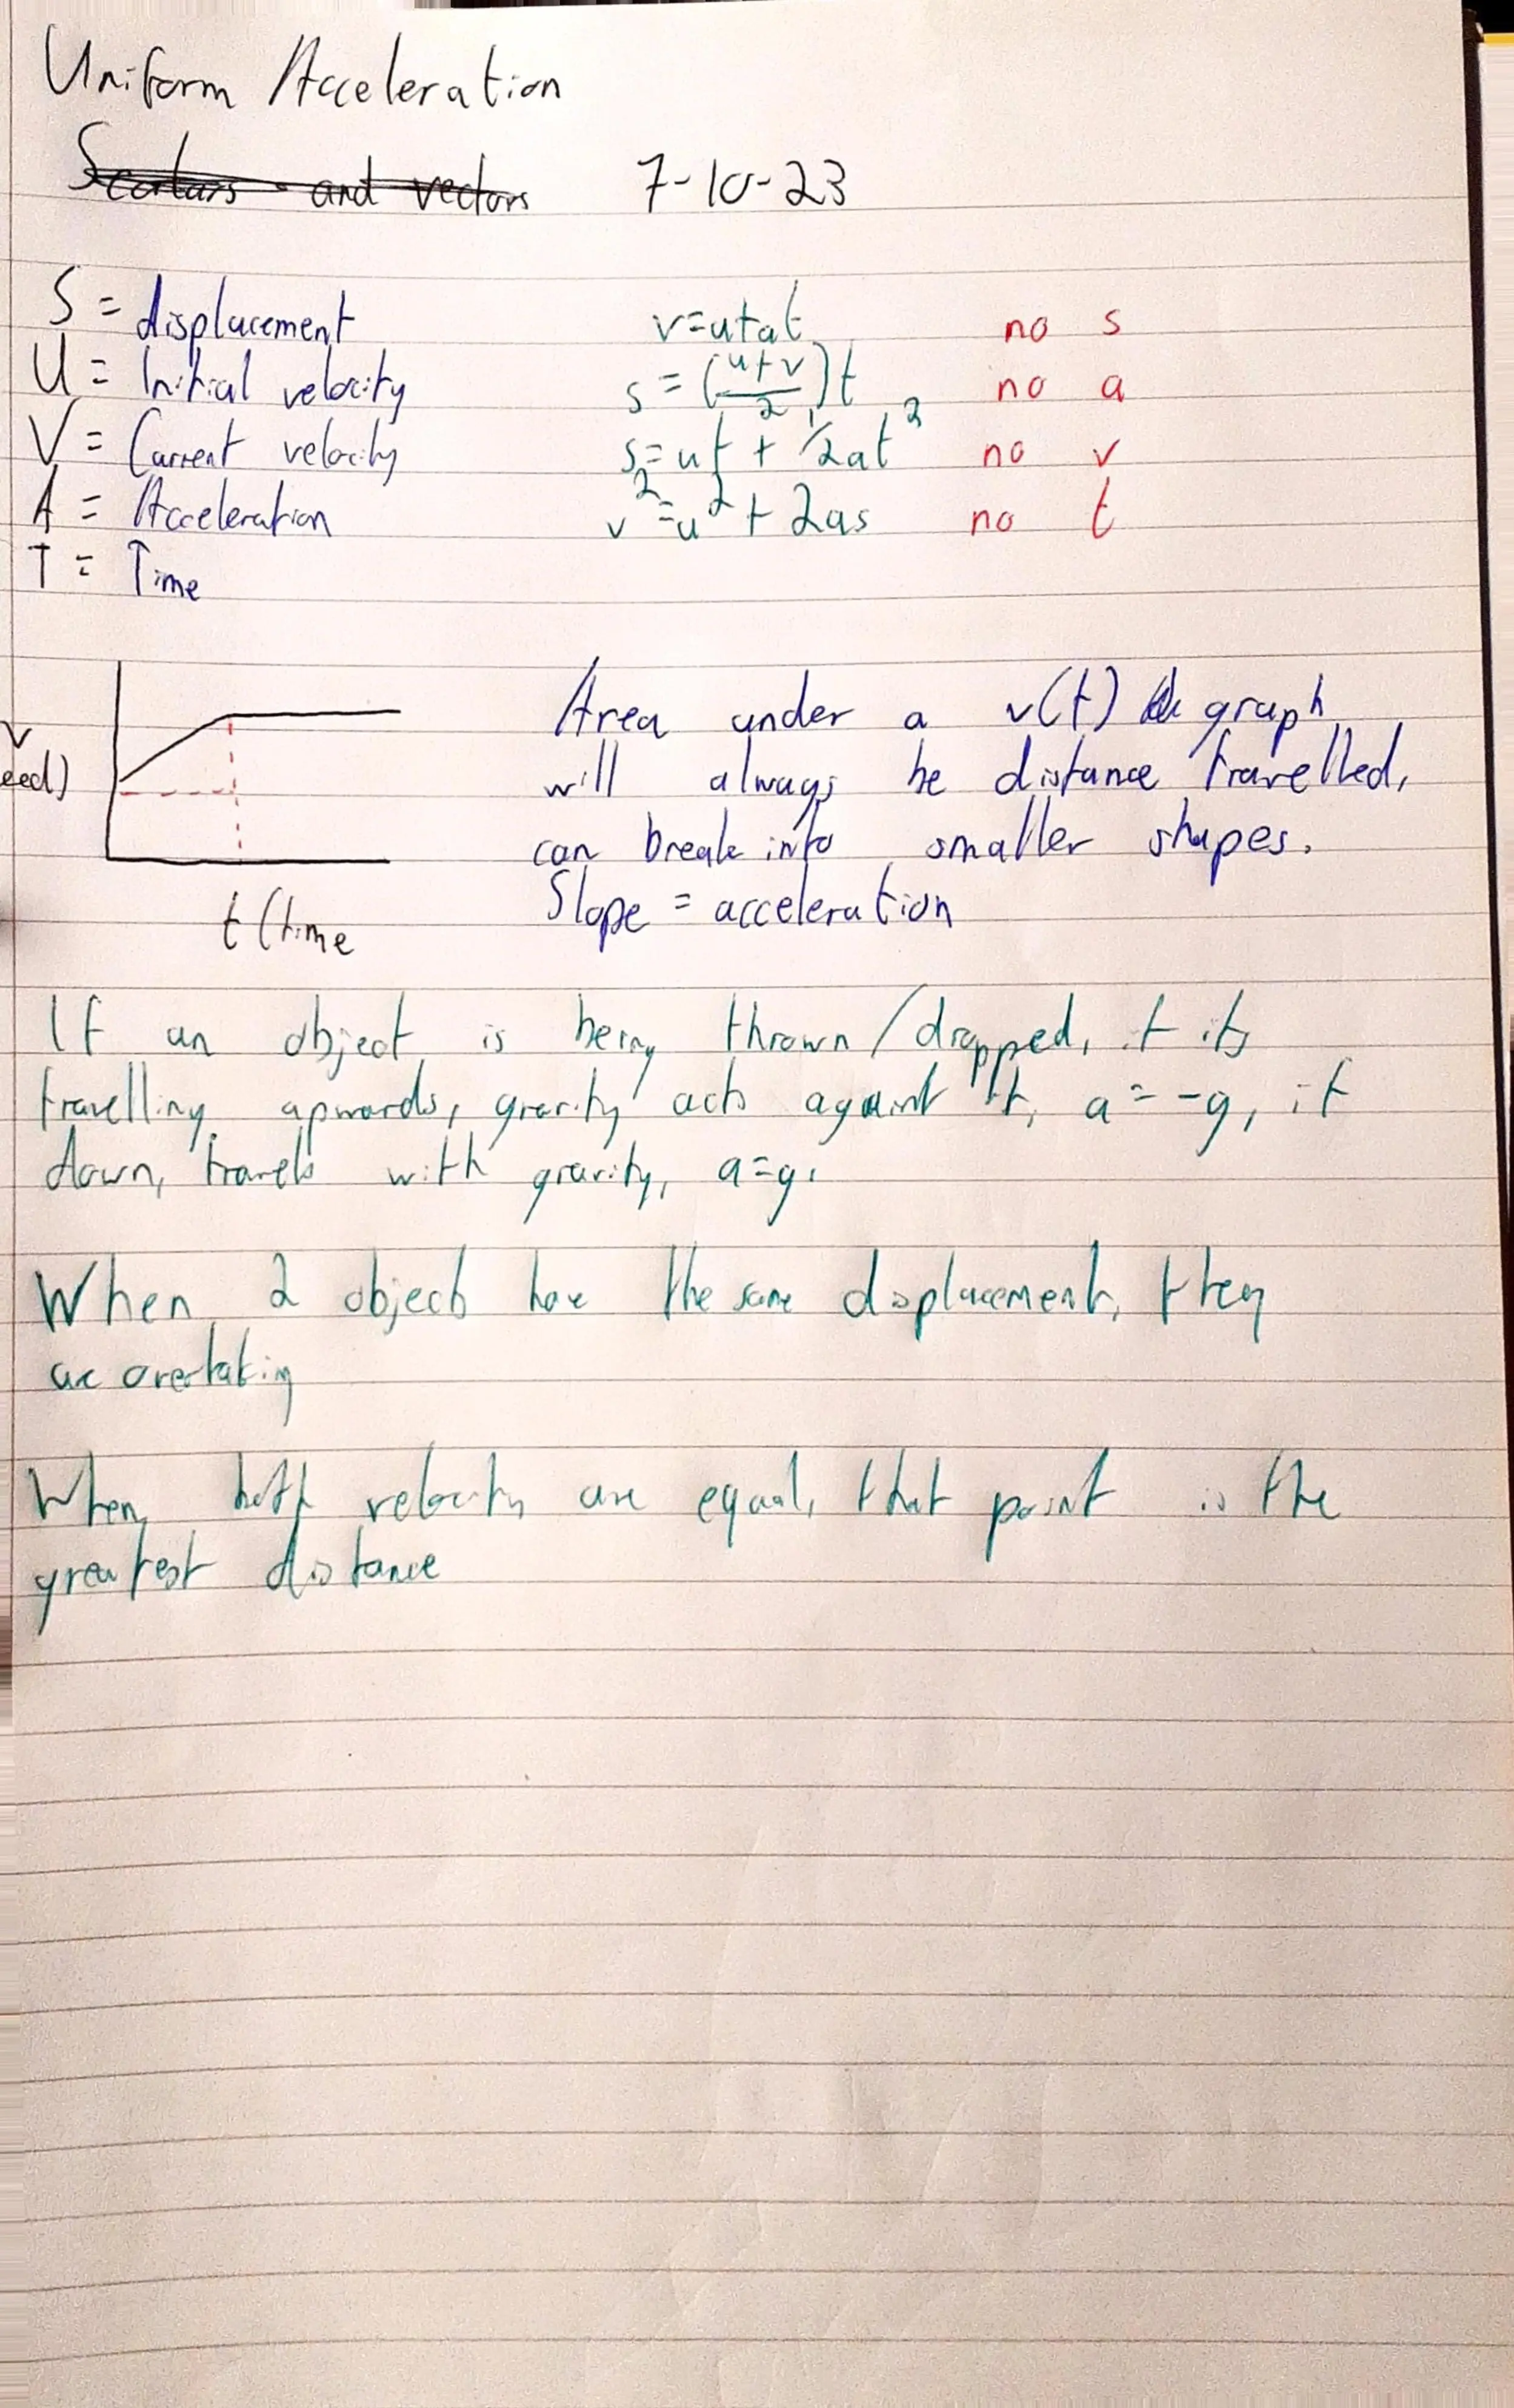 Uniform Acceleration
Scalars and vectors 7-10-23
S = displacement v=u+at no s
U = Initial velocity s = (u+v/2)t no a
V = Current velocity s=ut + 1/2at² no v
A = Acceleration v²=u²+2as no t
T = Time
v
eed)
t (time
Area under a v(t) graph
will always be distance travelled,
can break into smaller shapes.
Slope = acceleration
If an object is being thrown/dropped, if its
travelling upwards, gravity acts against it, a=-g, if
down, travels with gravity, a=g.
When 2 objects have the same displacement, they
are overtaking
When both velocity are equal, that point is the
greatest distance